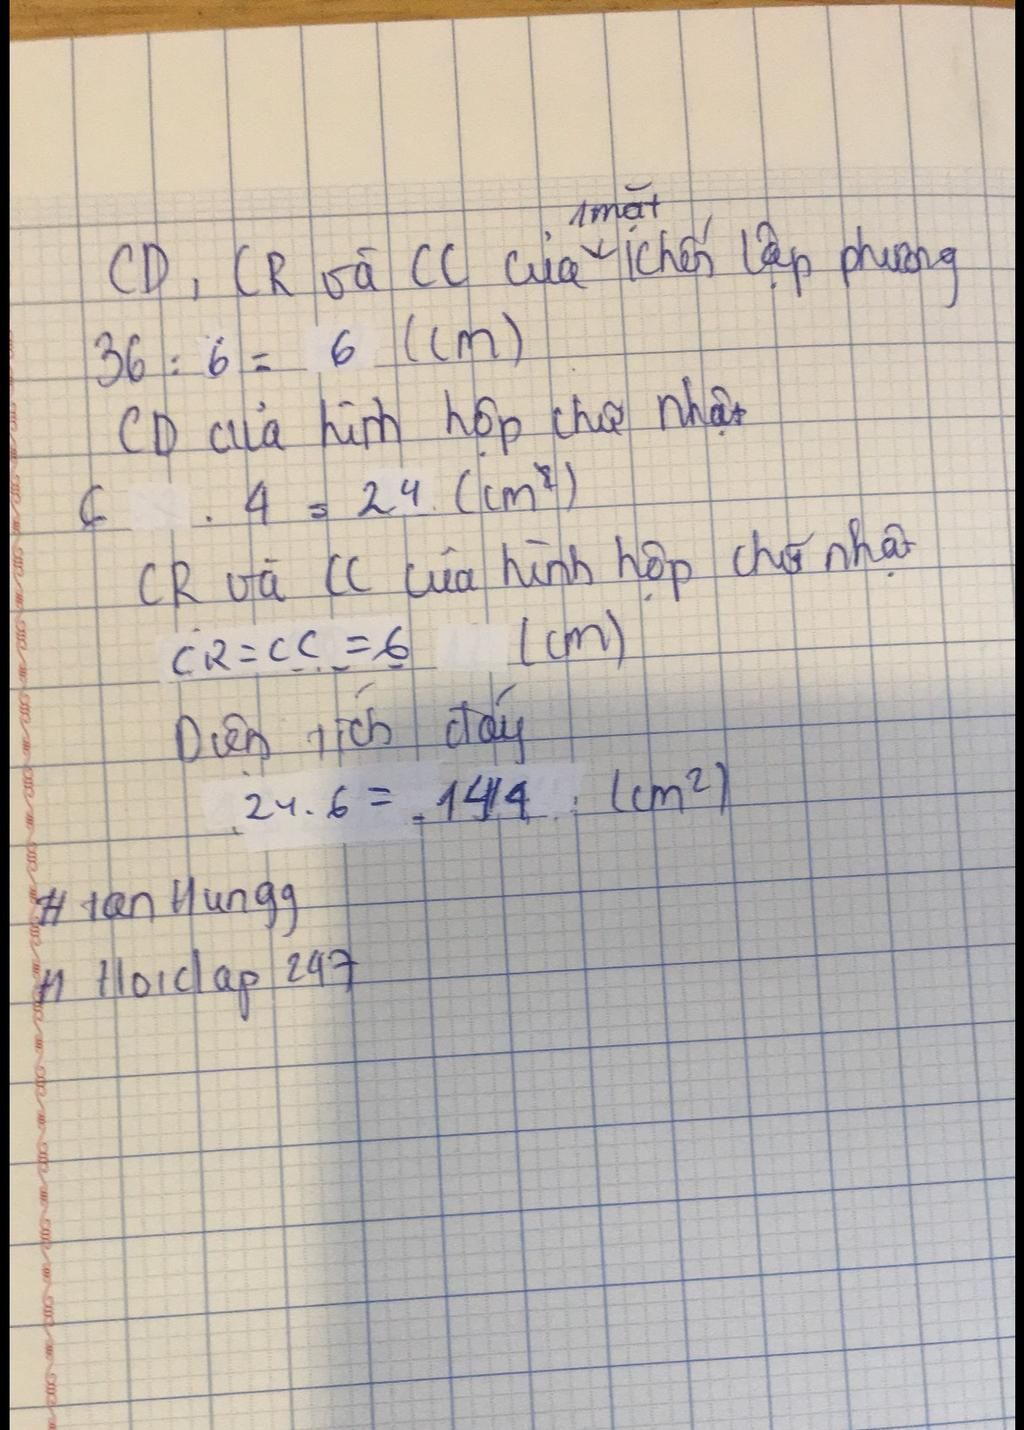 CD, CR và CC của 1 mặt khối lập phương
36 : 6 = 6 (cm)
CD của hình hộp chữ nhật
6 . 4 = 24 (cm²)
CR và CC của hình hộp chữ nhật
CR = CC = 6 (cm)
Diện tích đáy
24 . 6 = 144 (cm²)
# tanHungg
# Hoidap 247